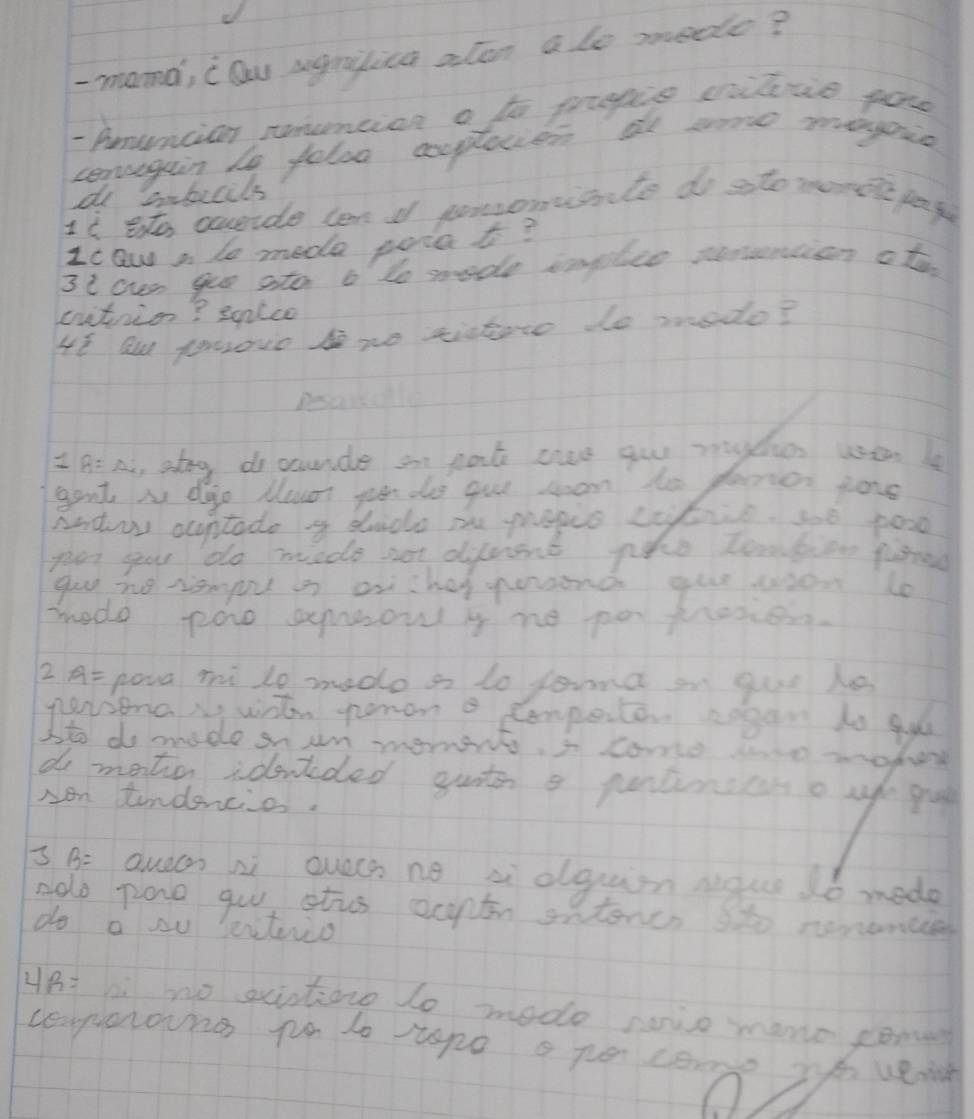 - mamá, ¿Que significa estar a la moda?
- Renunciar renunciar a tu propio criterio para
conseguir la falsa aceptación de una mayoria
de imbecils
1 ¿ Estas acuerdo con el pensamiento de esto momento porque
2 ¿ Que es la moda para ti?
3 ¿ crees que estar a la moda implica renunciar a tu
criterior? explica
4 ¿ Que pasaria si no existiera la moda?
Desarrollo
1 R= si, estoy de acuerdo en parte creo que muchos usan la
gente se deja llevar por lo que usan los demas para
sentirse aceptado y olvida su propio criterio. eso pasa
por que da miedo ser diferente pero tambien pienso
que no siempre es asi: hay persona que usan la
moda para expresarse y no por presion.
2 R= para mi la moda es la forma en que las
persona se visten pienan o comportan segun lo que
sta de moda en un momento. es como una manera
de mostrar identidad gustos o pertenecer a un grupo
son tendencias.
3 R= aveces si aveces no si alguien sigue la moda
solo para que otros acepten entonces sta renuncian
do a su criterio
4 R= si no existiera la moda seria menos
compararnos por la ropa o por como nos vemos